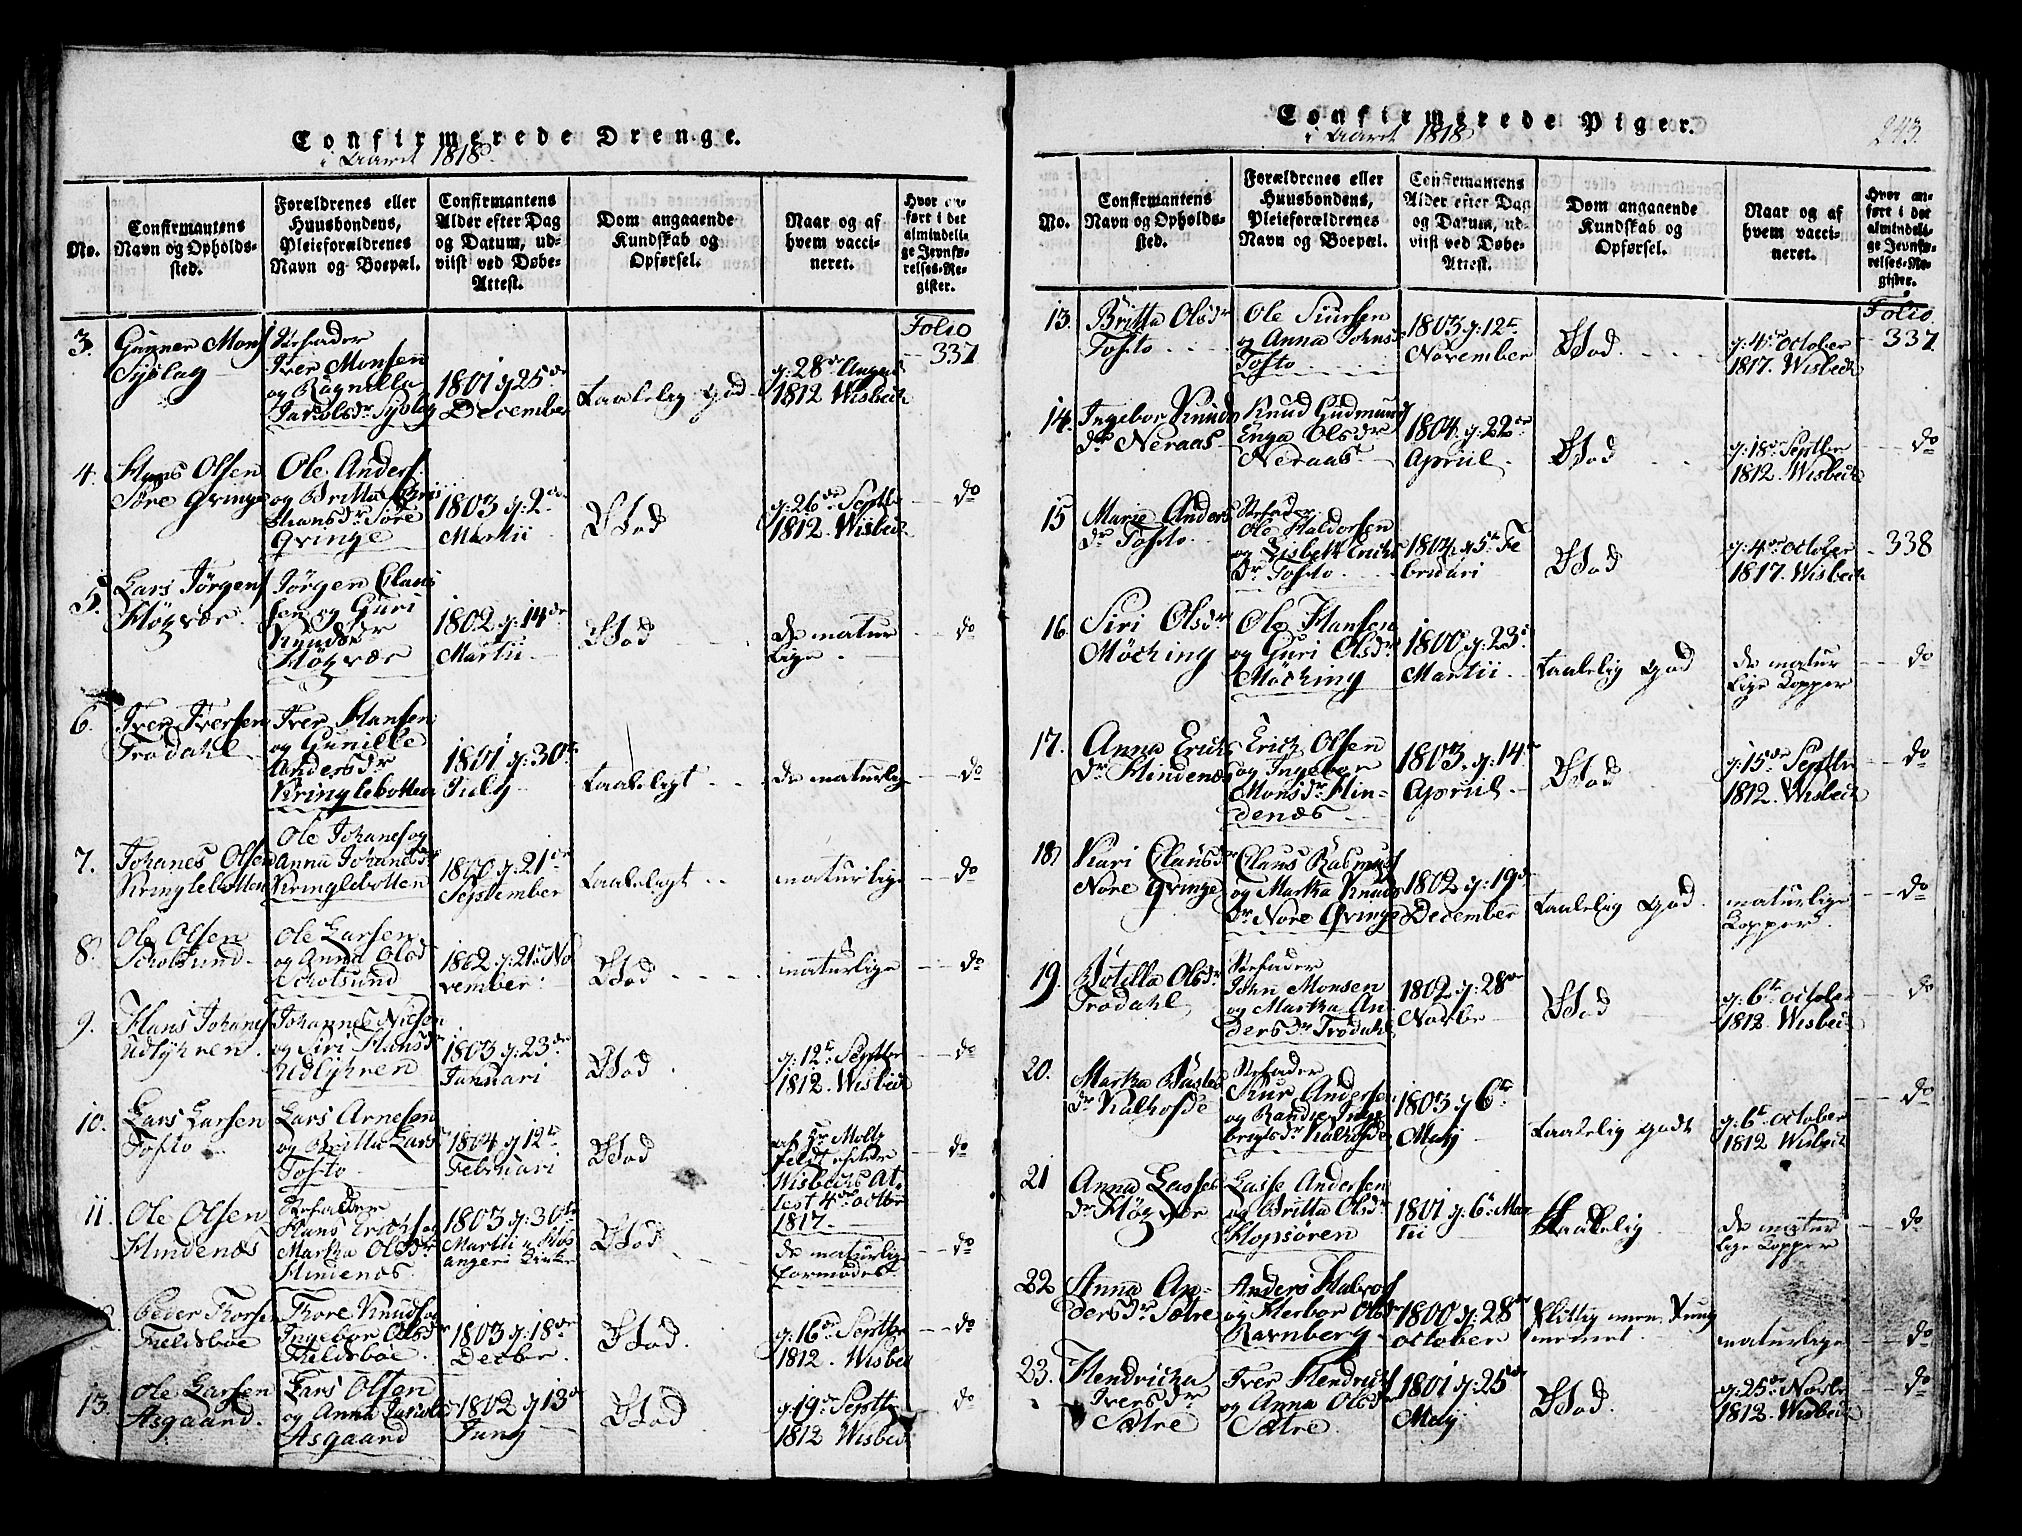 Confirmerede Drenge.
i Aaret 1818
No.
Confirmantens
Navn og Opholds-
sted.
Forældrenes eller
Huusbondens,
Pleieforældrenes
Navn og Boepæl.
Confirmantens
Alder efter Dag
og Datum, ud-
viist ved Døbe-
Attest.
Dom angaaende
Kundskab og
Opførsel.
Naar og af
hvem vacci-
neret.
Hvor an-
ført i det
almindeli-
ge Jevnfø-
relses-Re-
gister.
Folio
3.
Gunner Mons
Syslag
Iver Monsen
og Ragnilla
Jacobsdr Syslag
1801 g: 25de
December
Taalelig God
g: 28de August
1812 Wisbech
337
4.
Hans Olsen
Søre Qvinge
Ole Anders
og Britta
Hansdr Søre
Qvinge
1803 g: 2de
Martii
God
g: 26de Septbr
1812. Wisbech
do
5.
Lars Jørgens
Høgvær
Jørgen Claus
sen og Guri
Knudsdr
Høgvær
1802 g: 14de
Martii
God
de natur
lige
do
6.
Iver Iversen
Trodahl
Iver Hansen
og Gunille
Andersdr
Kringlebotten
1801 g: 30te
July
Taaleligt
de naturlige
do
7.
Johanes Olsen
Kringlebotten
Ole Johanes og
Anna Johanesdr
Kringlebotten
1800 g: 21de
September
Taalelagt
naturlige
do
8.
Ole Olsen
Scholsund
Ole Larsen
og Anna Olsd
Scholsund
1802 g: 21de No
vember
God
naturlige
do
9.
Hans Johanes
Udlyhren
Johannes Nielsen
og Siri Hansdr
Udlyhren
1803 g: 23de
Januari
God
g: 12te Septbr
1812. Wisbech
do
10.
Lars Larsen
Tosto
Lars Arnesen
og Britta Lars
Tosto
1804 g: 12te
Februari
God
af Hr Moltz
feldt efter
Wisbechs At
test 4de octbr
1817
do
11.
Ole Olsen
Hindenæs
Hans Erichsen
Martha Olsdr
Hindenæs
1803 g: 30te
Martii
God
de naturlige
formodes
do
Peder Thorsen
Fieldsbøe
Thore Knudsen
Ingebor Olsdr
Fieldsbøe
1803 g: 18de
Decbr.
God
g: 16de Septbr
1812. Wisbech
do
13.
Ole Larsen
Asgaard
Lars Olsen
og Anna
Asgaard
1802 g 13de
Juny
God
g: 19de Septbr
1812 Wisbech
do
Confirmerede Piger.
i Aaret 1818
243.
No.
Confirmantens
Navn og Opholds-
sted.
Forældrenes eller
Huusbondens,
Pleieforældrenes
Navn og Boepæl.
Confirmantens
Alder efter Dag
og Datum, ud-
viist ved Døbe-
Attest.
Dom angaaende
Kundskab og
Opførsel.
Naar og af
hvem vacci-
neret.
Hvor an-
ført i det
almindeli-
ge Jevnfø-
relses-Re-
gister.
Folio
13.
Britta Olsdr
Tosto
Ole Siursen
og Anna Johns
Tosto
1803 g: 12te
November
God
g: 4de october
1817. Wisbech
337
14.
Ingebor Knuds
dr Neraas
Knud Gudmund
Enga Olsdr
Neraas
1804. g: 22de
Apriil
God
g: 18de Septbr
1812. Wisbech
do
15
Marie Anders
dr Tosto
Ole Haldorsen
og Lisbeth Erichs
dr Tosto
1804 g 5te Fe
bruari
God
g: 4de october
1817. Wisbech
338
16.
Siri Olsdr
Møching
Ole Hansen
og Guri Olsdr
Møching
1800 g: 23de
Martii
Taalelig God
de natur
lige Kopper
do
17.
Anna Erichs
dr Hindenæs
Erich Olsen
og Ingebor
Monsdr Hin-
denæs
1803. g: 14de
Apriil
God
g: 15de Septbr
1812. Wisbech
do
18
Kari Clausdr
Nore Qvinge
Claus Rasmus
og Martha Knuds
dr Nore Qvinge
1802 g: 19de
December
Taalelig God
naturlige
Kopper
do
19.
Botilla Olsdr
Trodahl
John Monsen
og Martha An
dersdr Trodahl
1802 g: 28de
Novbr
God
g: 6te october
1812. Wisbech
do
20.
Martha
dr Kalhofde
Siur Andersen
og Randie Inge
brigtsdr Kalhofde
1803 g 6te
Maij
Taalelig godt
g: 6te october
1812 Wisbech
do
21
Anna Lasses
dr Høgvær
Lasse Andersen
og Britta Olsdr
Hopsøren
1801 g: 6te Mar
tii
Taalelig
de natur
lige Kopper
do
22
Anna An-
dersdr Sætre
Anders Halvors
og Herbor Olsdr
Ravnberg
1800 g: 28de
october
Flittig men Tung
nemmet.
naturlige
do
23.
Hendricka
Iversdr
Sætre
Iver Hendrich
og Anna Olsdr
Sætre
1801 g: 25de
Maij
God
g: 25de Novbr
1812. Wisbech
do